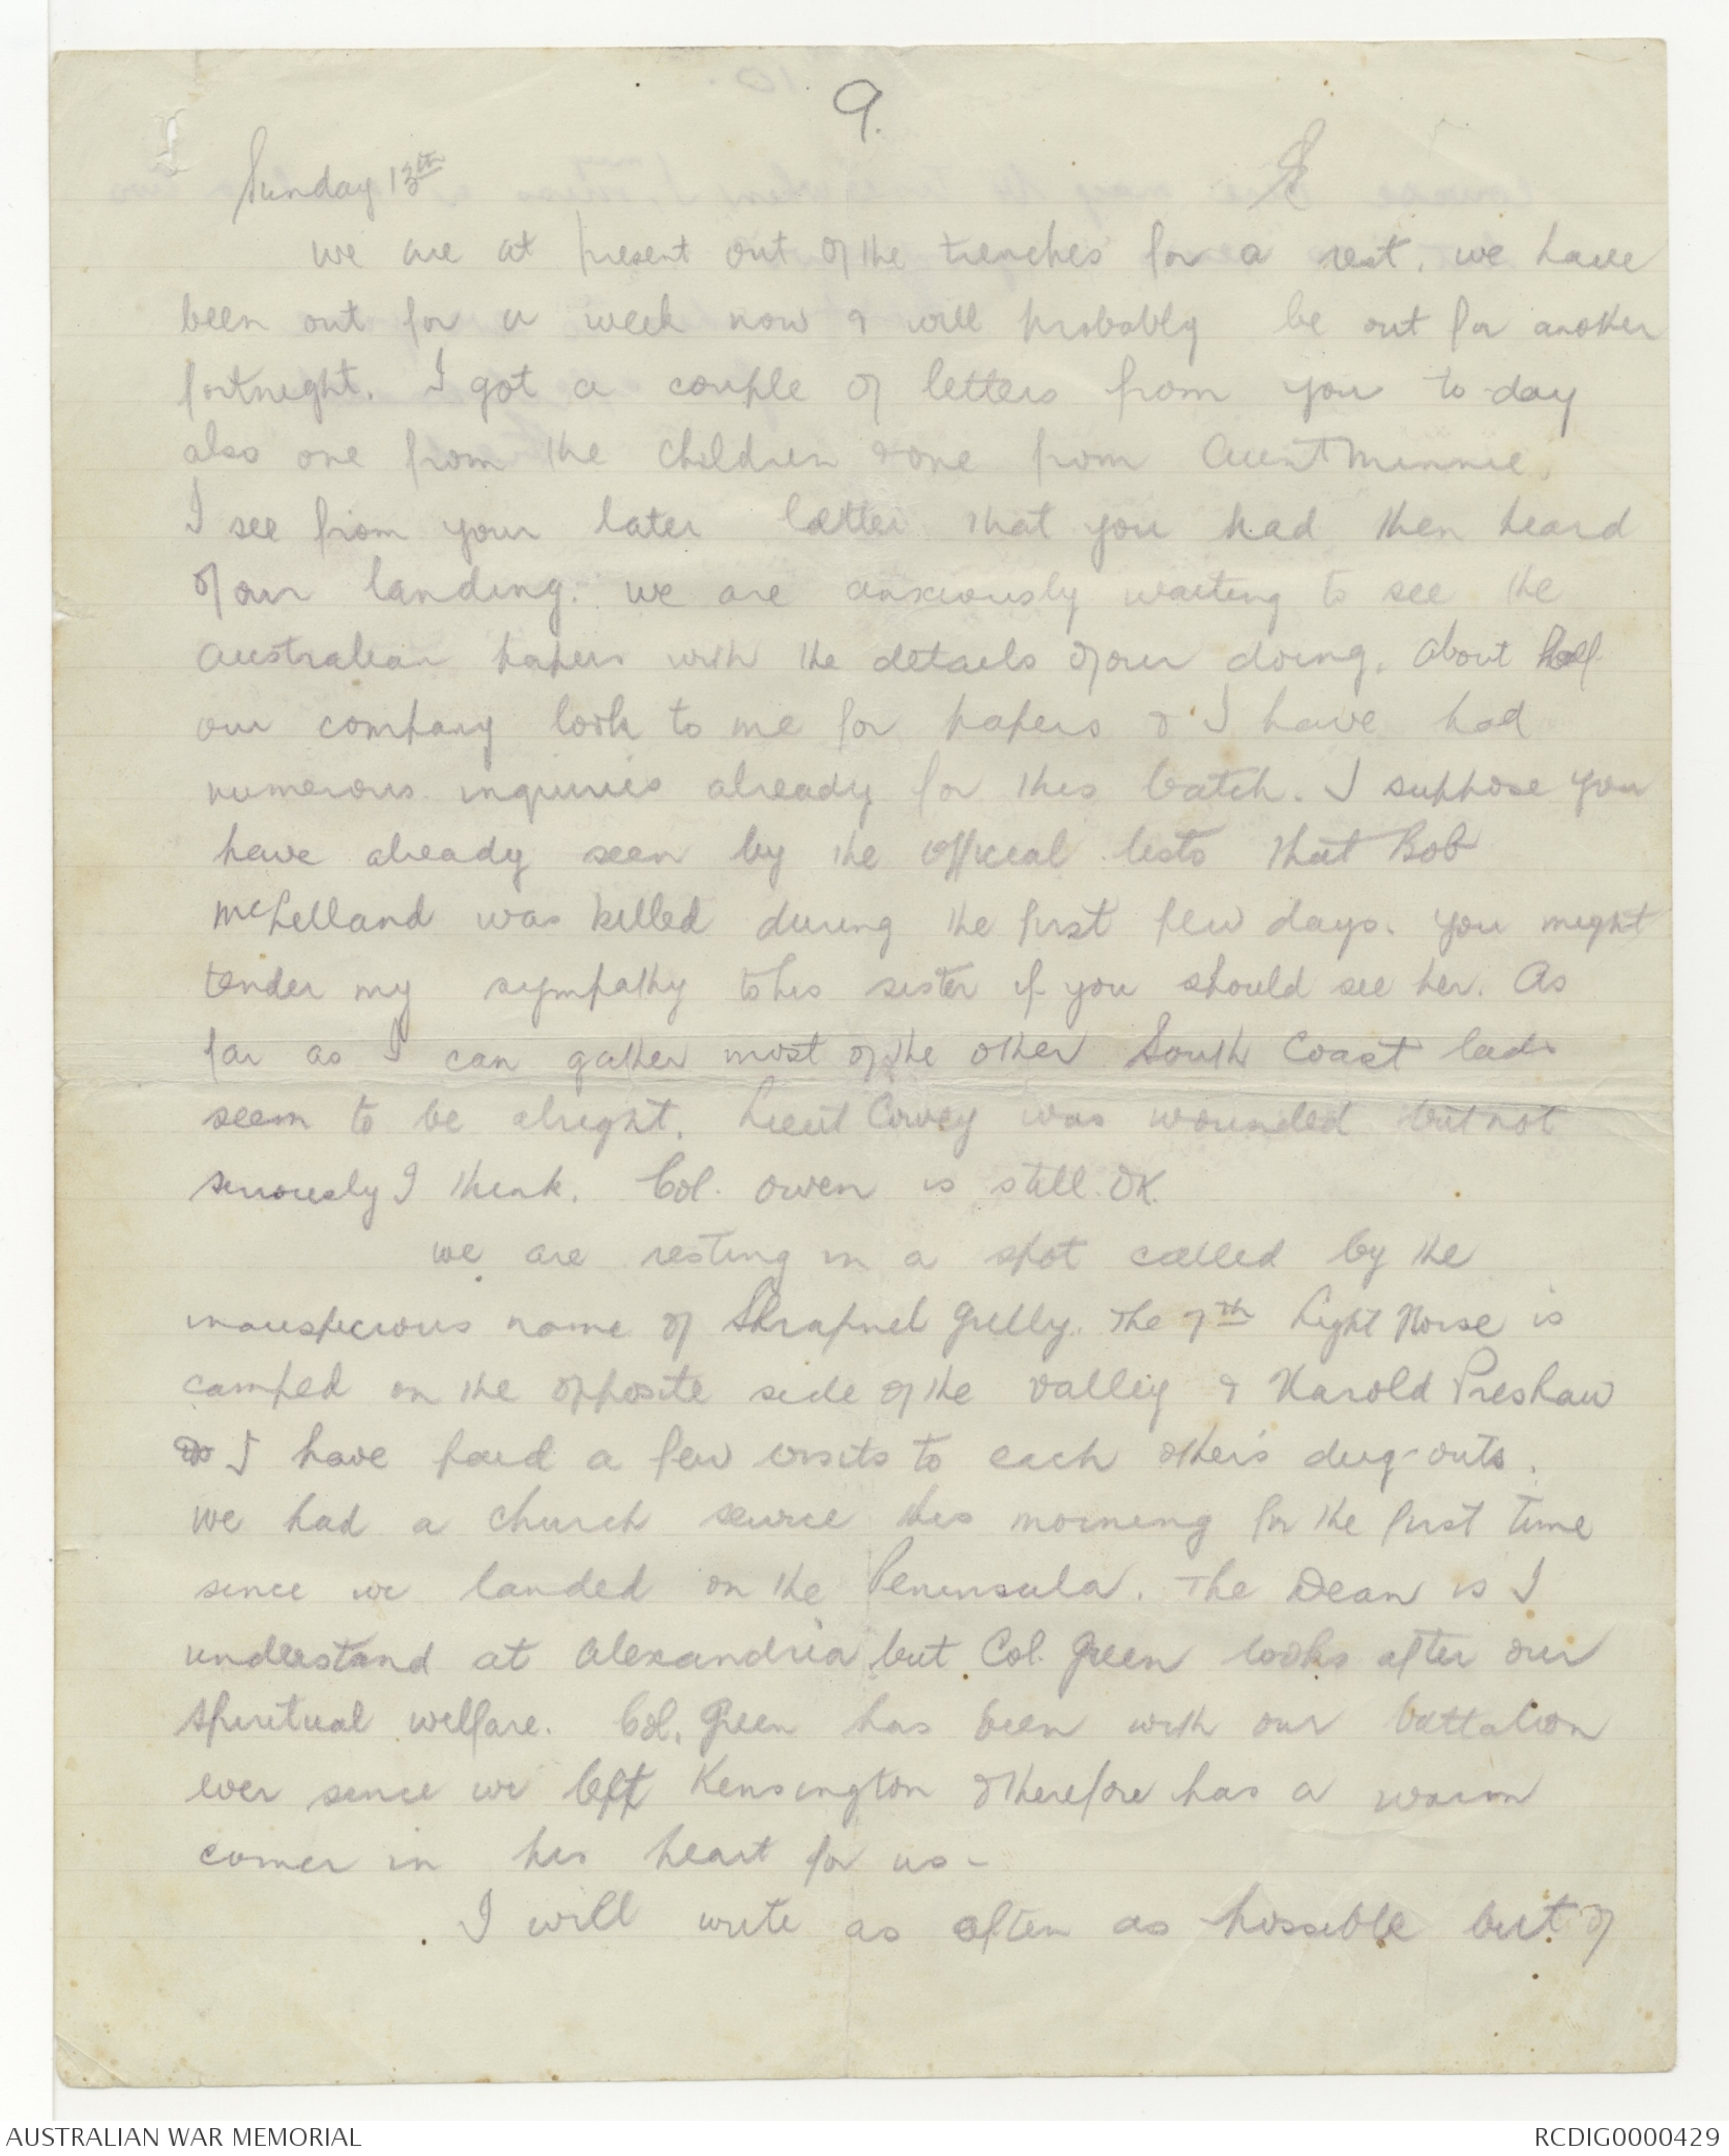 9.
Sunday 13th
we are at present out of the trenches for a rest. we have
been out for a week now & will probably be out for another
fortnight. I got a couple of letters from you to-day
also one from the children & one from Aunt Minnie.
I see from your later letter that you had then heard
of our landing. we are anxiously waiting to see the
Australian papers with the details of our doing. About half
our company look to me for papers & I have had
numerous inquiries already for this batch. I suppose you
have already seen by the official lists that Bob
McLelland was killed during the first few days. You might
tender my sympathy to his sister if you should see her. As
far as I can gather most of the other South Coast lads
seem to be alright. Lieut Cowey was wounded but not
seriously I think. Col. Owen is still OK.
we are resting in a spot called by the
inauspicious name of Shrapnel Gully. The 7th Light Horse is
camped on the opposite side of the valley & Harold Preshaw
& I have paid a few visits to each other's dug-outs.
We had a church service this morning for the first time
since we landed on the Peninsula. The Dean is I
understand at Alexandria but Col. Green looks after our
spiritual welfare. Col. Green has been with our battalion
ever since we left Kensington & therefore has a warm
corner in his heart for us -
I will write as often as possible but of
AUSTRALIAN WAR MEMORIAL
RCDIG0000429